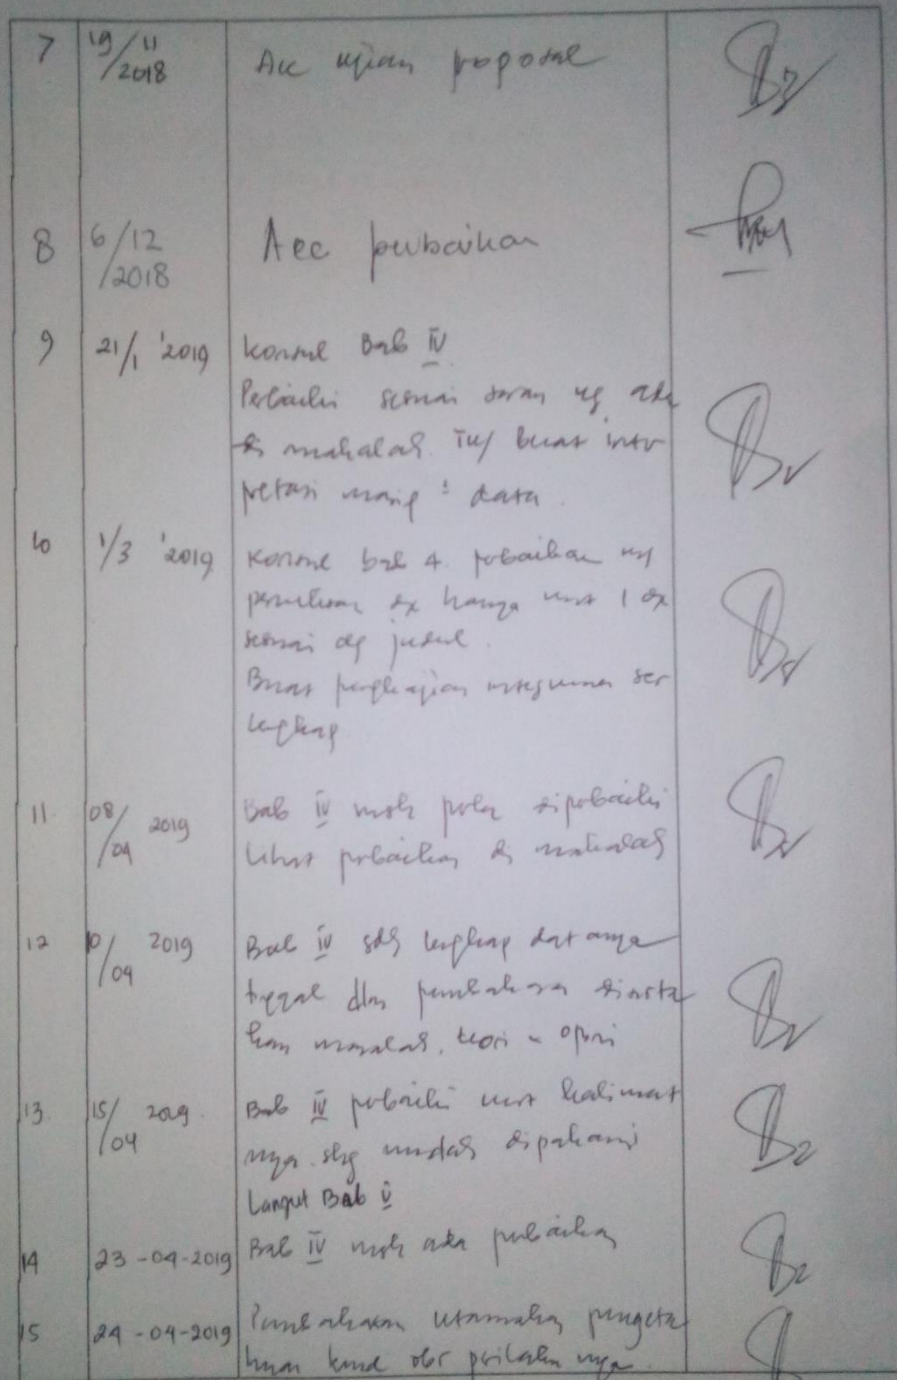 7 19/11 /2018 Acc ujian proposal
8 6/12 /2018 Acc perbaikan
9 21/1 '2019 Konsul Bab IV
Perbaiki sesuai saran yg ada
di makalah. buat inter
pretasi masing 2 data.
10 1/3 '2019 Konsul bab 4. perbaikan
dx hanya 1 dx
sesuai dg judul.
Buat pengkajian integumen ser
lengkap
11. 08/04 2019 Bab IV msh perlu diperbaiki
Lihat perbaikan di makalah
12 10/04 2019 Bab IV sdh lengkap datanya
tinggal dlm pembahasan
kan masalah, teori opini
13. 15/04 2019. Bab IV perbaiki kalimat
nya shg mudah dipahami
Lanjut Bab V
14 23-04-2019 Bab IV msh ada perbaikan
15 24-04-2019 Pembahasan utamakan pengeta
huan perilaku nya.